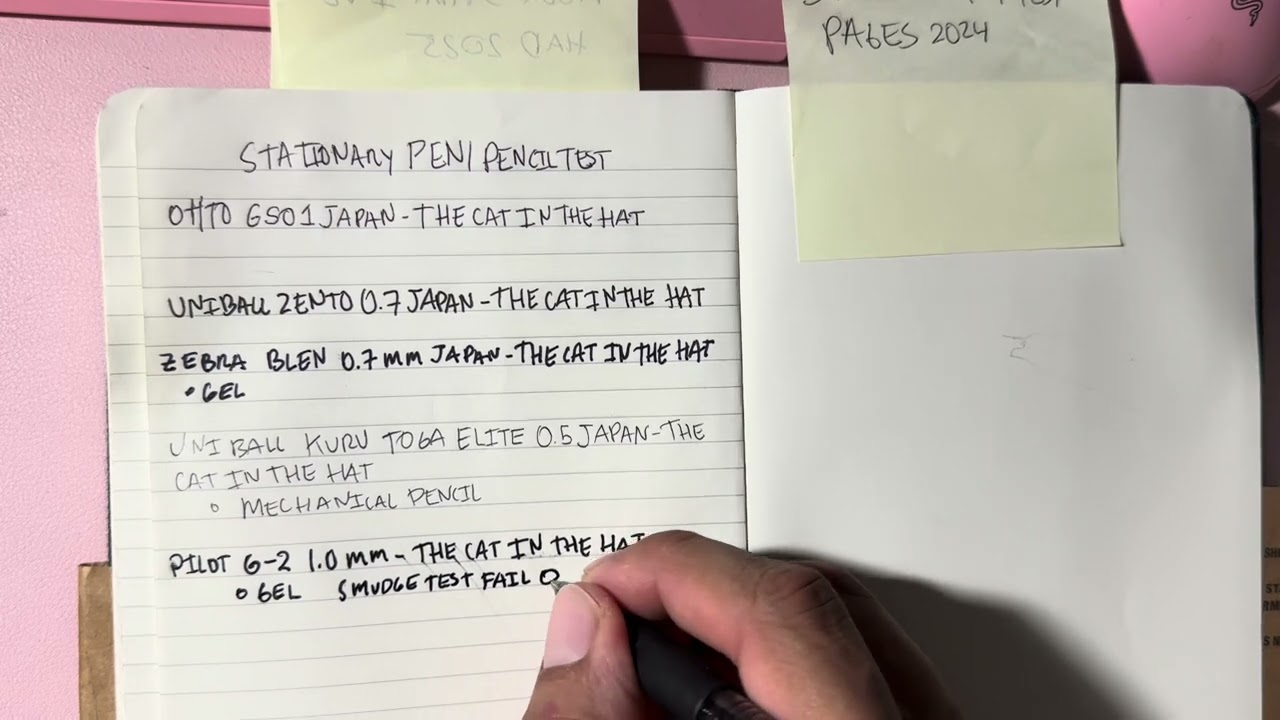 HAD 2022
PAGES 2024
STATIONARY PEN/PENCIL TEST
OHTO GS01 JAPAN - THE CAT IN THE HAT
UNIBALL ZENTO 0.7 JAPAN - THE CAT IN THE HAT
ZEBRA BLEN 0.7mm JAPAN - THE CAT IN THE HAT
• GEL
UNIBALL KURU TOGA ELITE 0.5 JAPAN - THE
CAT IN THE HAT
o MECHANICAL PENCIL
PILOT G-2 1.0mm - THE CAT IN THE HAT
o GEL SMUDGE TEST FAIL O